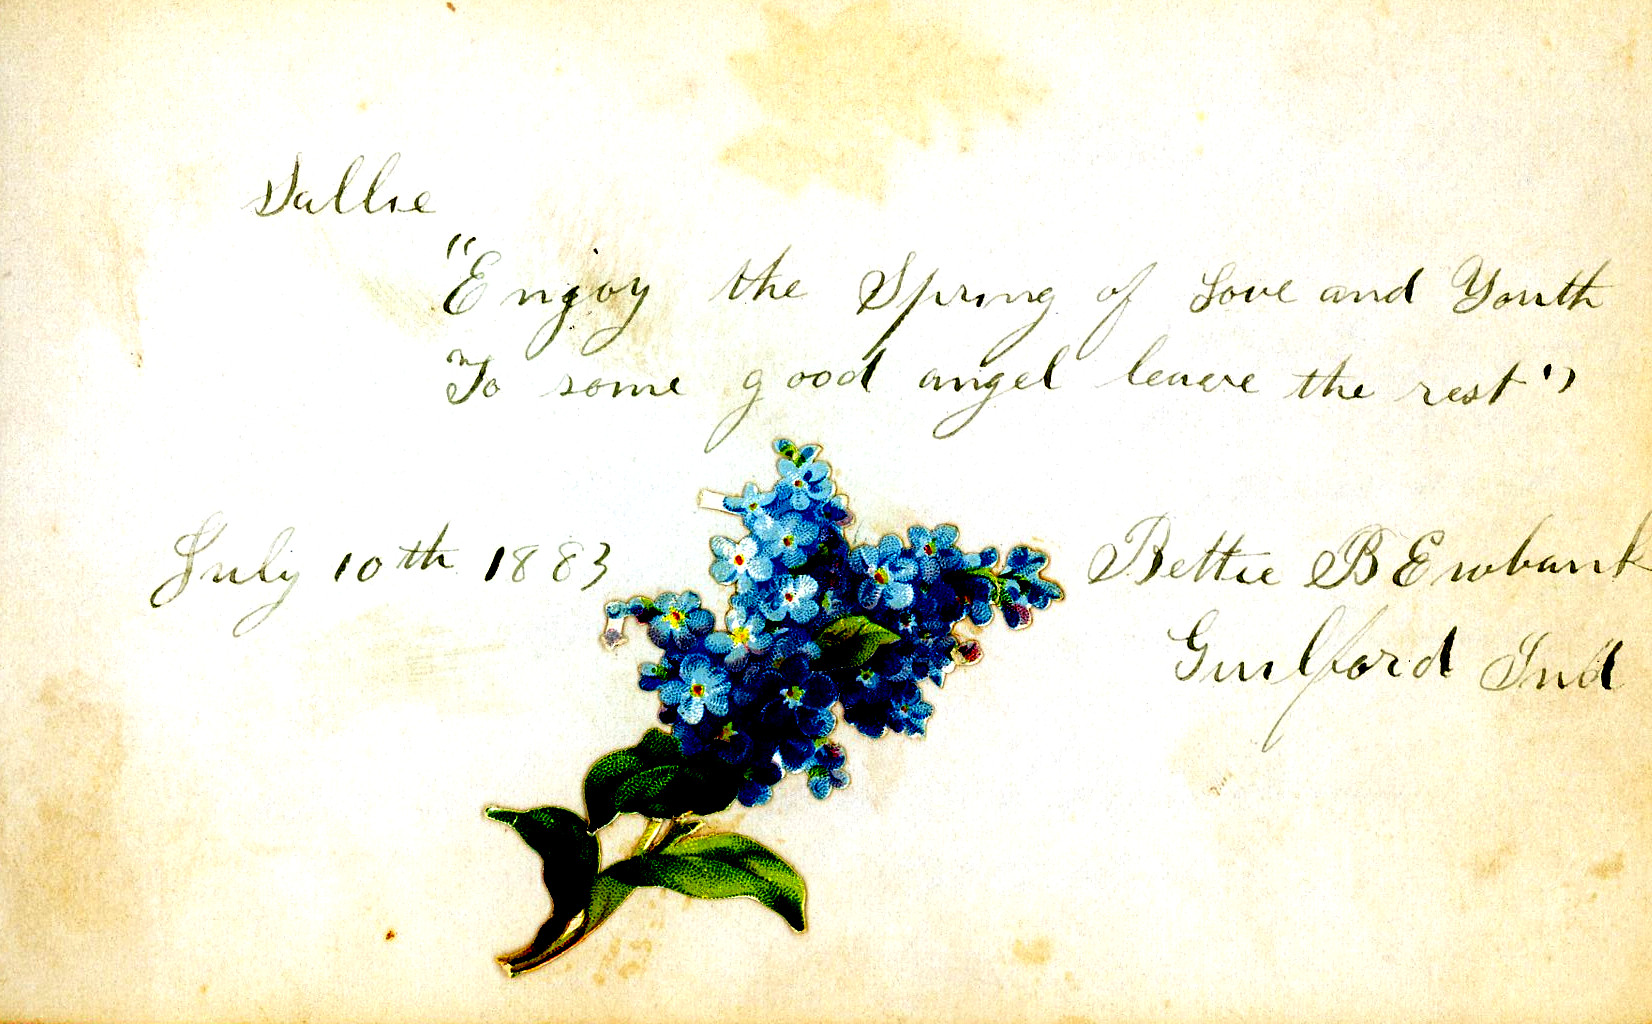 Sallie
"Enjoy the Spring of Love and Youth
To some good angel leave the rest"
July 10th 1883
Bettie B Ewbank
Guilford Ind